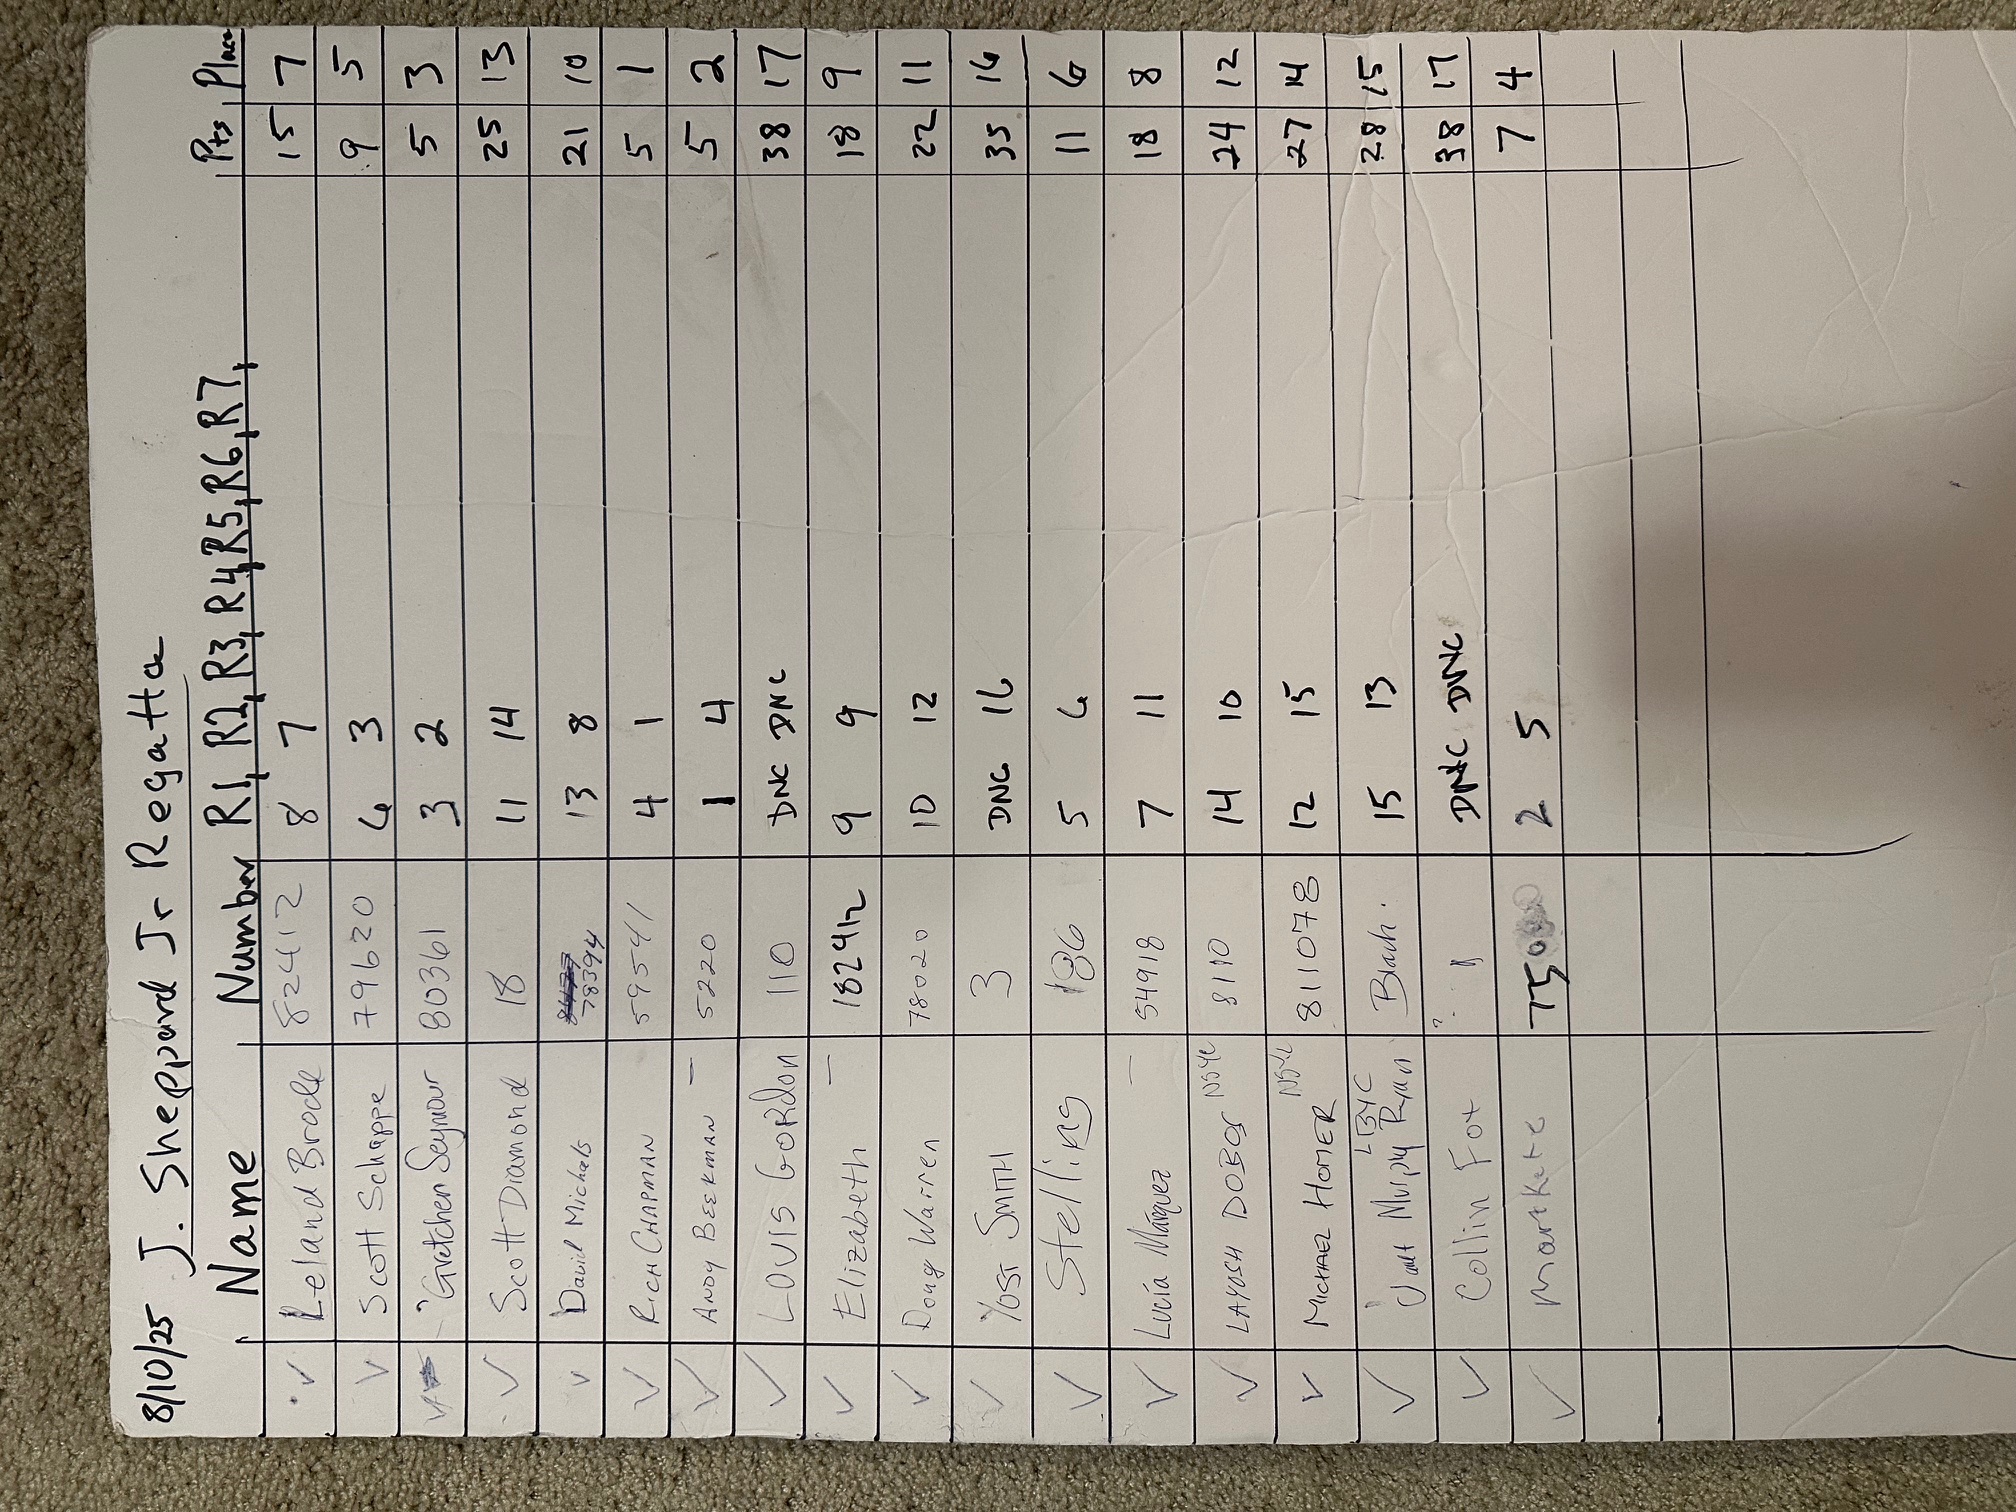 8/10/25 J. Sheppard Jr Regatta
Name Number R1, R2, R3, R4, R5, R6, R7, Pts, Place
✓ Leland Brode 82412 8 7 15 7
✓ Scott Schappe 79620 6 3 9 5
Gretchen Seymour 80361 3 2 5 3
✓ Scott Diamond 18 11 14 25 13
✓ David Michels 78394 13 8 21 10
✓ RICH CHAPMAN 59541 4 1 5 1
✓ ANDY BEEKMAN — 5220 1 4 5 2
✓ LOUIS GORDON 110 DNC DNC 38 17
✓ Elizabeth — 182412 9 9 18 9
✓ Doug Warren 78020 10 12 22 11
✓ YOST SMITH 3 DNC 16 35 16
✓ Stelling 186 5 6 11 6
✓ Lucía Márquez — 54918 7 11 18 8
✓ LAYOSH DOBOS NSYC 8110 14 10 24 12
✓ MICHAEL HOMER NSYC 811078 12 15 27 14
✓ Murphy Ryan LBYC 15 13 28 15
✓ Collin Fox ? DNC DNC 38 17
✓ Mart Kate 750 2 5 7 4